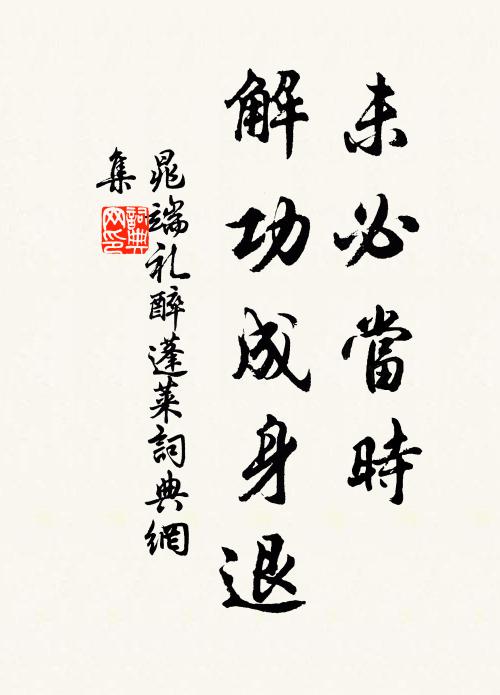 未必當時
解功成身退
晁端礼醉蓬莱詞典網
集
詞典
网印